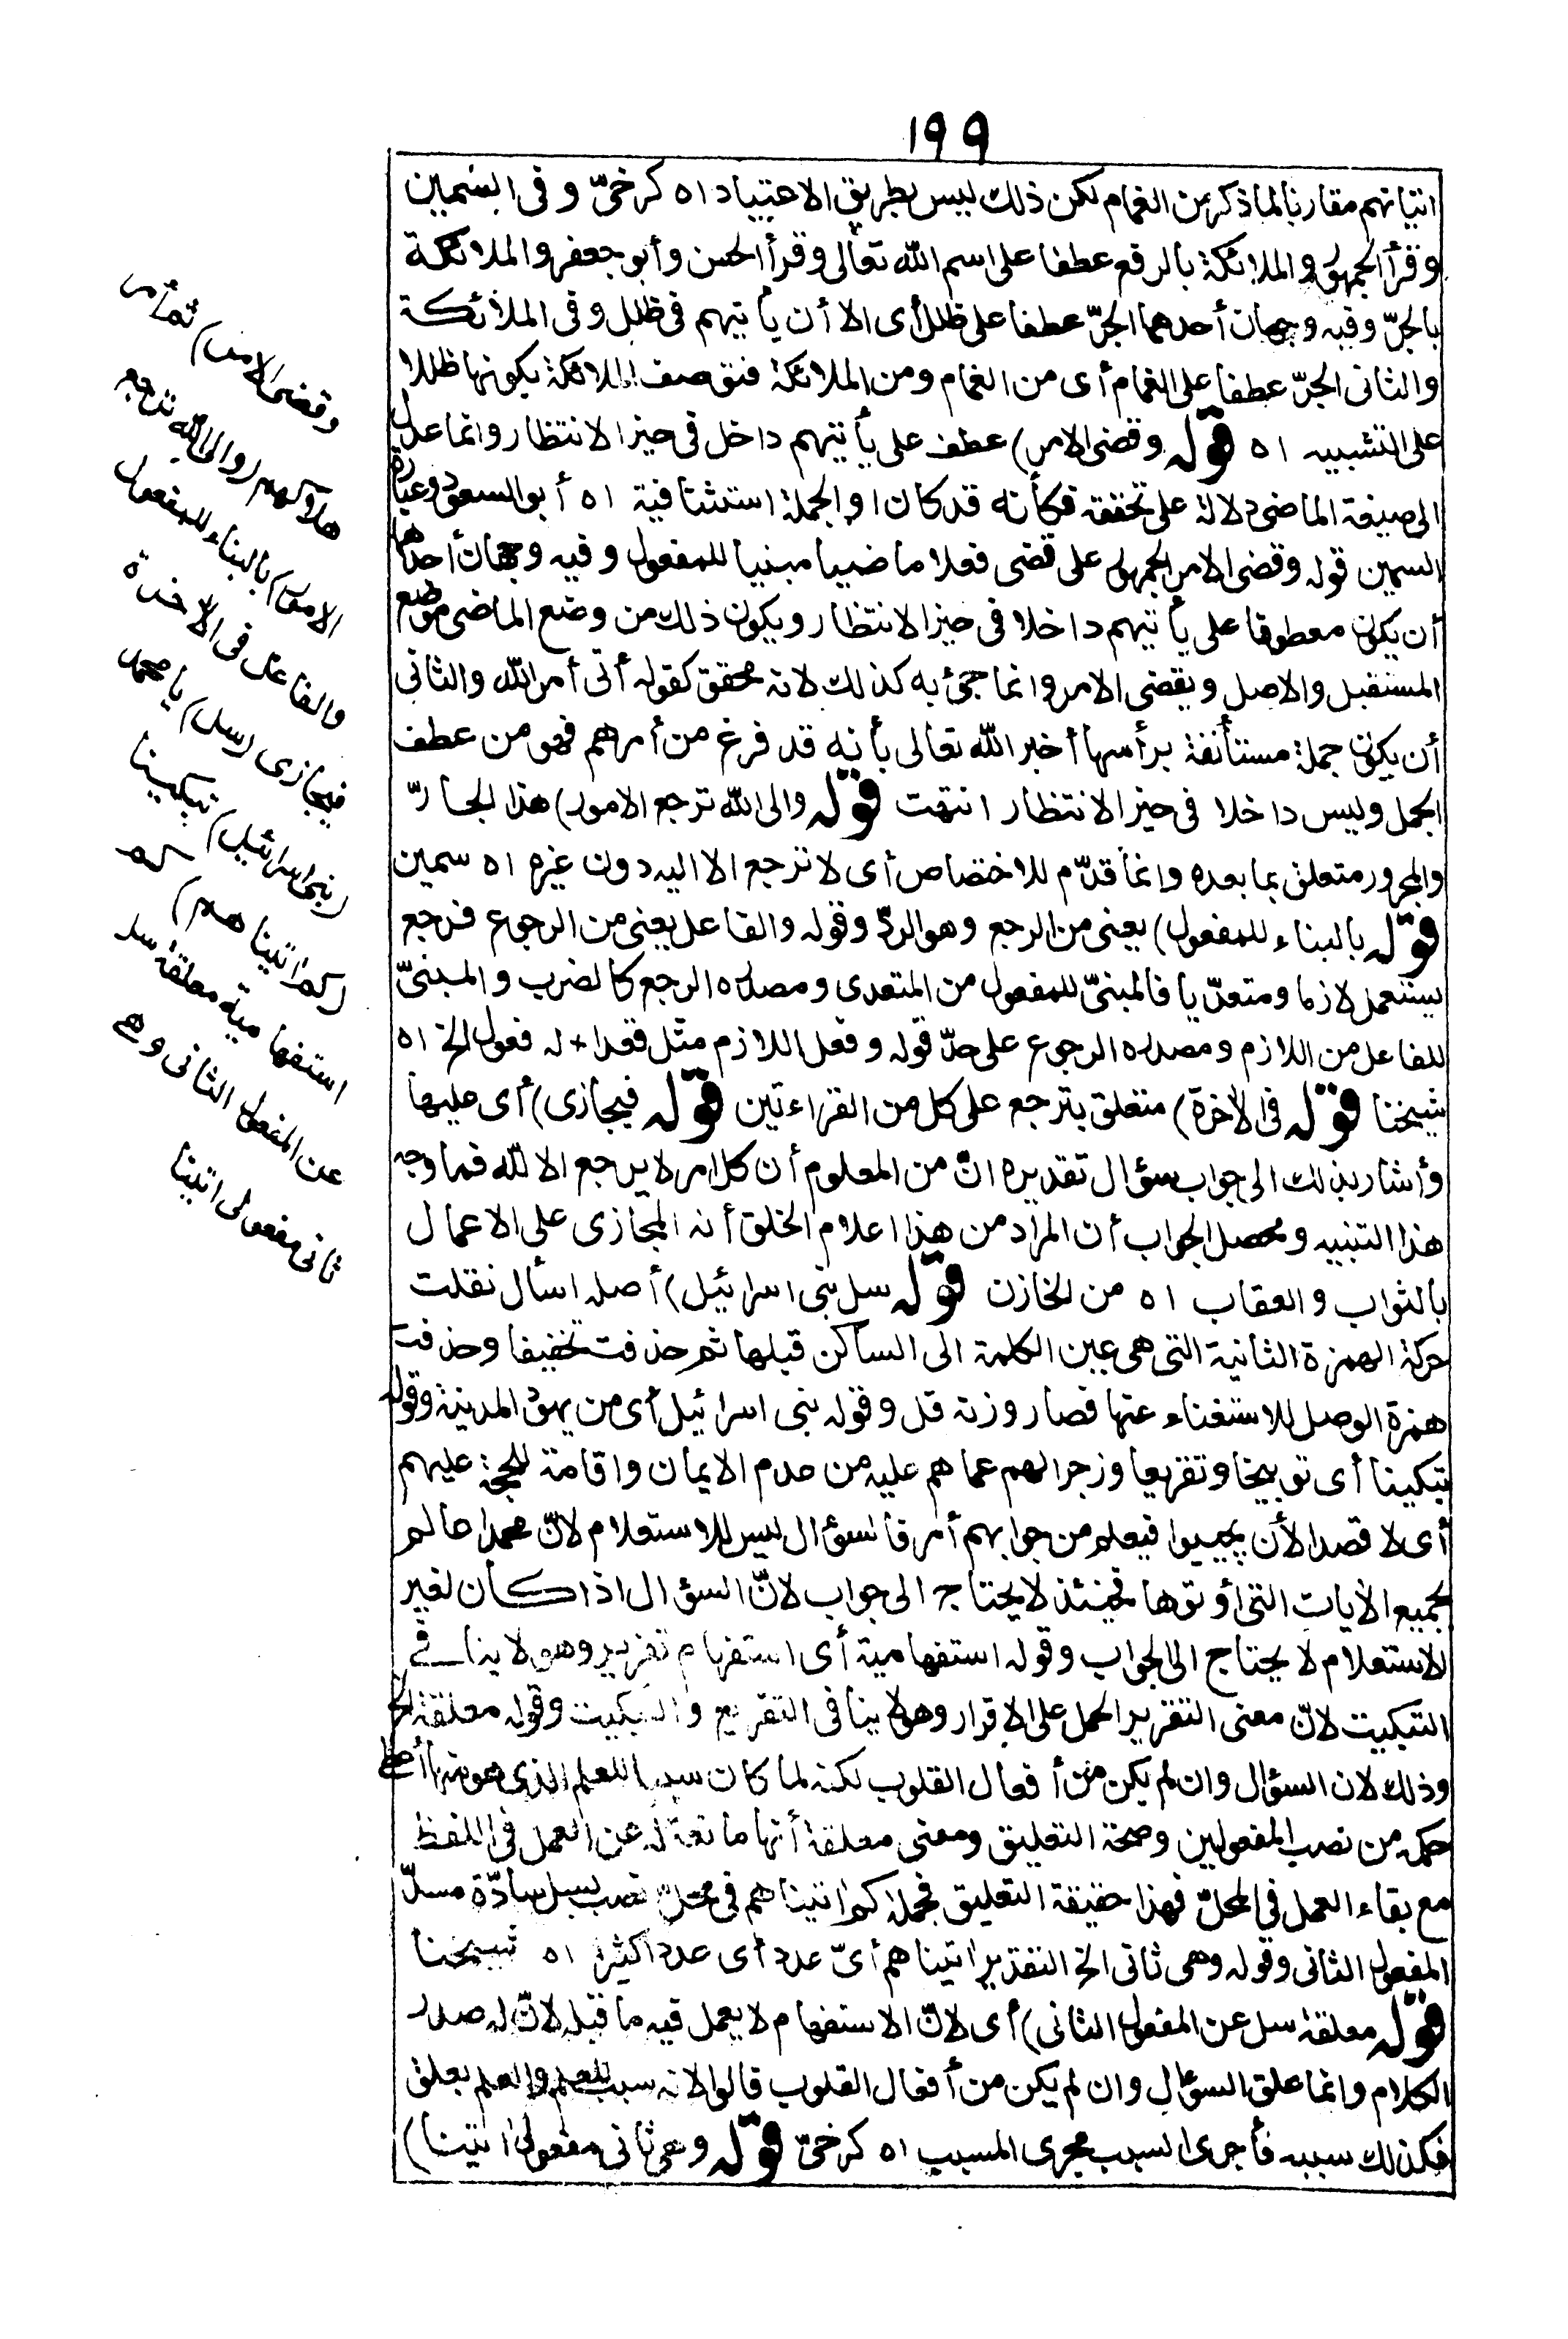 ١٩٩
اتيانهم مقارنا لما ذكر من الغمام لكن ذلك ليس بطريق الاعتياد اه كرخىّ وفى السمين
وقرأ الجمهور والملائكة بالرفع عطفا على اسم الله تعالى وقرأ الحسن وأبو جعفر والملائكة
بالجرّ وفيه وجهان أحدهما الجرّ عطفا على ظلل أى الا أن يأتيهم فى ظلل وفى الملائكة
والثانى الجرّ عطفا على الغمام أى من الغمام ومن الملائكة فتوصف الملائكة بكونها ظللا
على التشبيه اه قوله وقضى الامر) عطف على يأتيهم داخل فى حيز الانتظار وانما عدل
الى صيغة الماضى دلالة على تحققه فكأنه قد كان او الجملة استئنافية اه أبو السعود وعبارة
السمين قوله وقضى الامر الجمهور على قضى فعلا ماضيا مبنيا للمفعول وفيه وجهان أحدهما
أن يكون معطوفا على يأتيهم داخلا فى حيز الانتظار ويكون ذلك من وضع الماضى موضع
المستقبل والاصل ويقضى الامر وانما جئ به كذلك لانه محقق كقوله أتى أمر الله والثانى
أن يكون جملة مستأنفة برأسها أخبر الله تعالى بأنه قد فرغ من أمرهم فهو من عطف
الجمل وليس داخلا فى حيز الانتظار انتهت قوله والى الله ترجع الامور) هذا الجارّ
والمجرور متعلق بما بعده وانما قدّم للاختصاص أى لا ترجع الا اليه دون غيره اه سمين
قوله بالبناء للمفعول) يعنى من الرجع وهو الردّ وقوله والفاعل يعنى من الرجوع فرجع
يستعمل لازما ومتعدّيا فالمبنىّ للمفعول من المتعدى ومصدره الرجع كالضرب والمبنىّ
للفاعل من اللازم ومصدره الرجوع على حدّ قوله وفعل اللازم مثل قعدا + له فعول الخ اه
شيخنا قوله فى الآخرة) متعلق بترجع على كل من القراءتين قوله فيجازى) أى عليها
وأشار بذلك الى جواب سؤال تقديره انّ من المعلوم أن كل امر لا يرجع الا لله فما وجه
هذا التنبيه ومحصل الجواب أن المراد من هذا اعلام الخلق أنه المجازى على الاعمال
بالثواب والعقاب اه من الخازن قوله سل بنى اسرائيل) أصله اسأل نقلت
حركة الهمزة الثانية التى هى عين الكلمة الى الساكن قبلها ثم حذفت تخفيفا وحذفت
همزة الوصل للاستغناء عنها فصار وزنه فل وقوله بنى اسرائيل أى من يهود المدينة وقوله
تبكيتا أى توبيخا وتقريعا وزجرا لهم عما هم عليه من عدم الايمان واقامة للحجة عليهم
أى لا قصدا لأن يجيبوا فيعلم من جوابهم أمر فالسؤال ليس للاستعلام لانّ محمدا عالم
بجميع الآيات التى أوتوها فحينئذ لا يحتاج الى جواب لانّ السؤال اذا كان لغير
الاستعلام لا يحتاج الى الجواب وقوله استفهامية أى استفهام تقرير وهو لا ينافى
التبكيت لانّ معنى التقرير الحمل على الاقرار وهو لا ينافى التقريع والتبكيت وقوله معلقة الخ
وذلك لان السؤال وان لم يكن من أفعال القلوب لكنه لما كان سببا للعلم الذى هو منها أعطى
حكمه من نصب المفعولين وصحة التعليق ومعنى معلقة أنها مانعة له عن العمل فى اللفظ
مع بقاء العمل فى المحلّ فهذا حقيقة التعليق فجملة كم اٰتيناهم فى محلّ نصب بسل سادّة مسدّ
المفعول الثانى وقوله وهى ثانى الخ التقدير اٰتيناهم أىّ عدد أى عددا كثيرا اه شيخنا
قوله معلقة سل عن المفعول الثانى) أى لانّ الاستفهام لا يعمل فيه ما قبله لانّ له صدر
الكلام وانما علق السؤال وان لم يكن من أفعال القلوب قالوا لانه سبب للعلم والعلم يعلق
فكذلك سببه فأجرى السبب مجرى المسبب اه كرخىّ قوله وهى ثانى مفعولى اٰتينا)
وقضى الامر) تم أمر
هلاكهم (والى الله ترجع
الامور) بالبناء للمفعول
والفاعل فى الآخرة
فيجازى (سل) يا محمد
(بنى اسرائيل) تبكيتا
(كم اٰتيناهم) كم
استفهامية معلقة سل
عن المفعول الثانى وهى
ثانى مفعولى اٰتينا